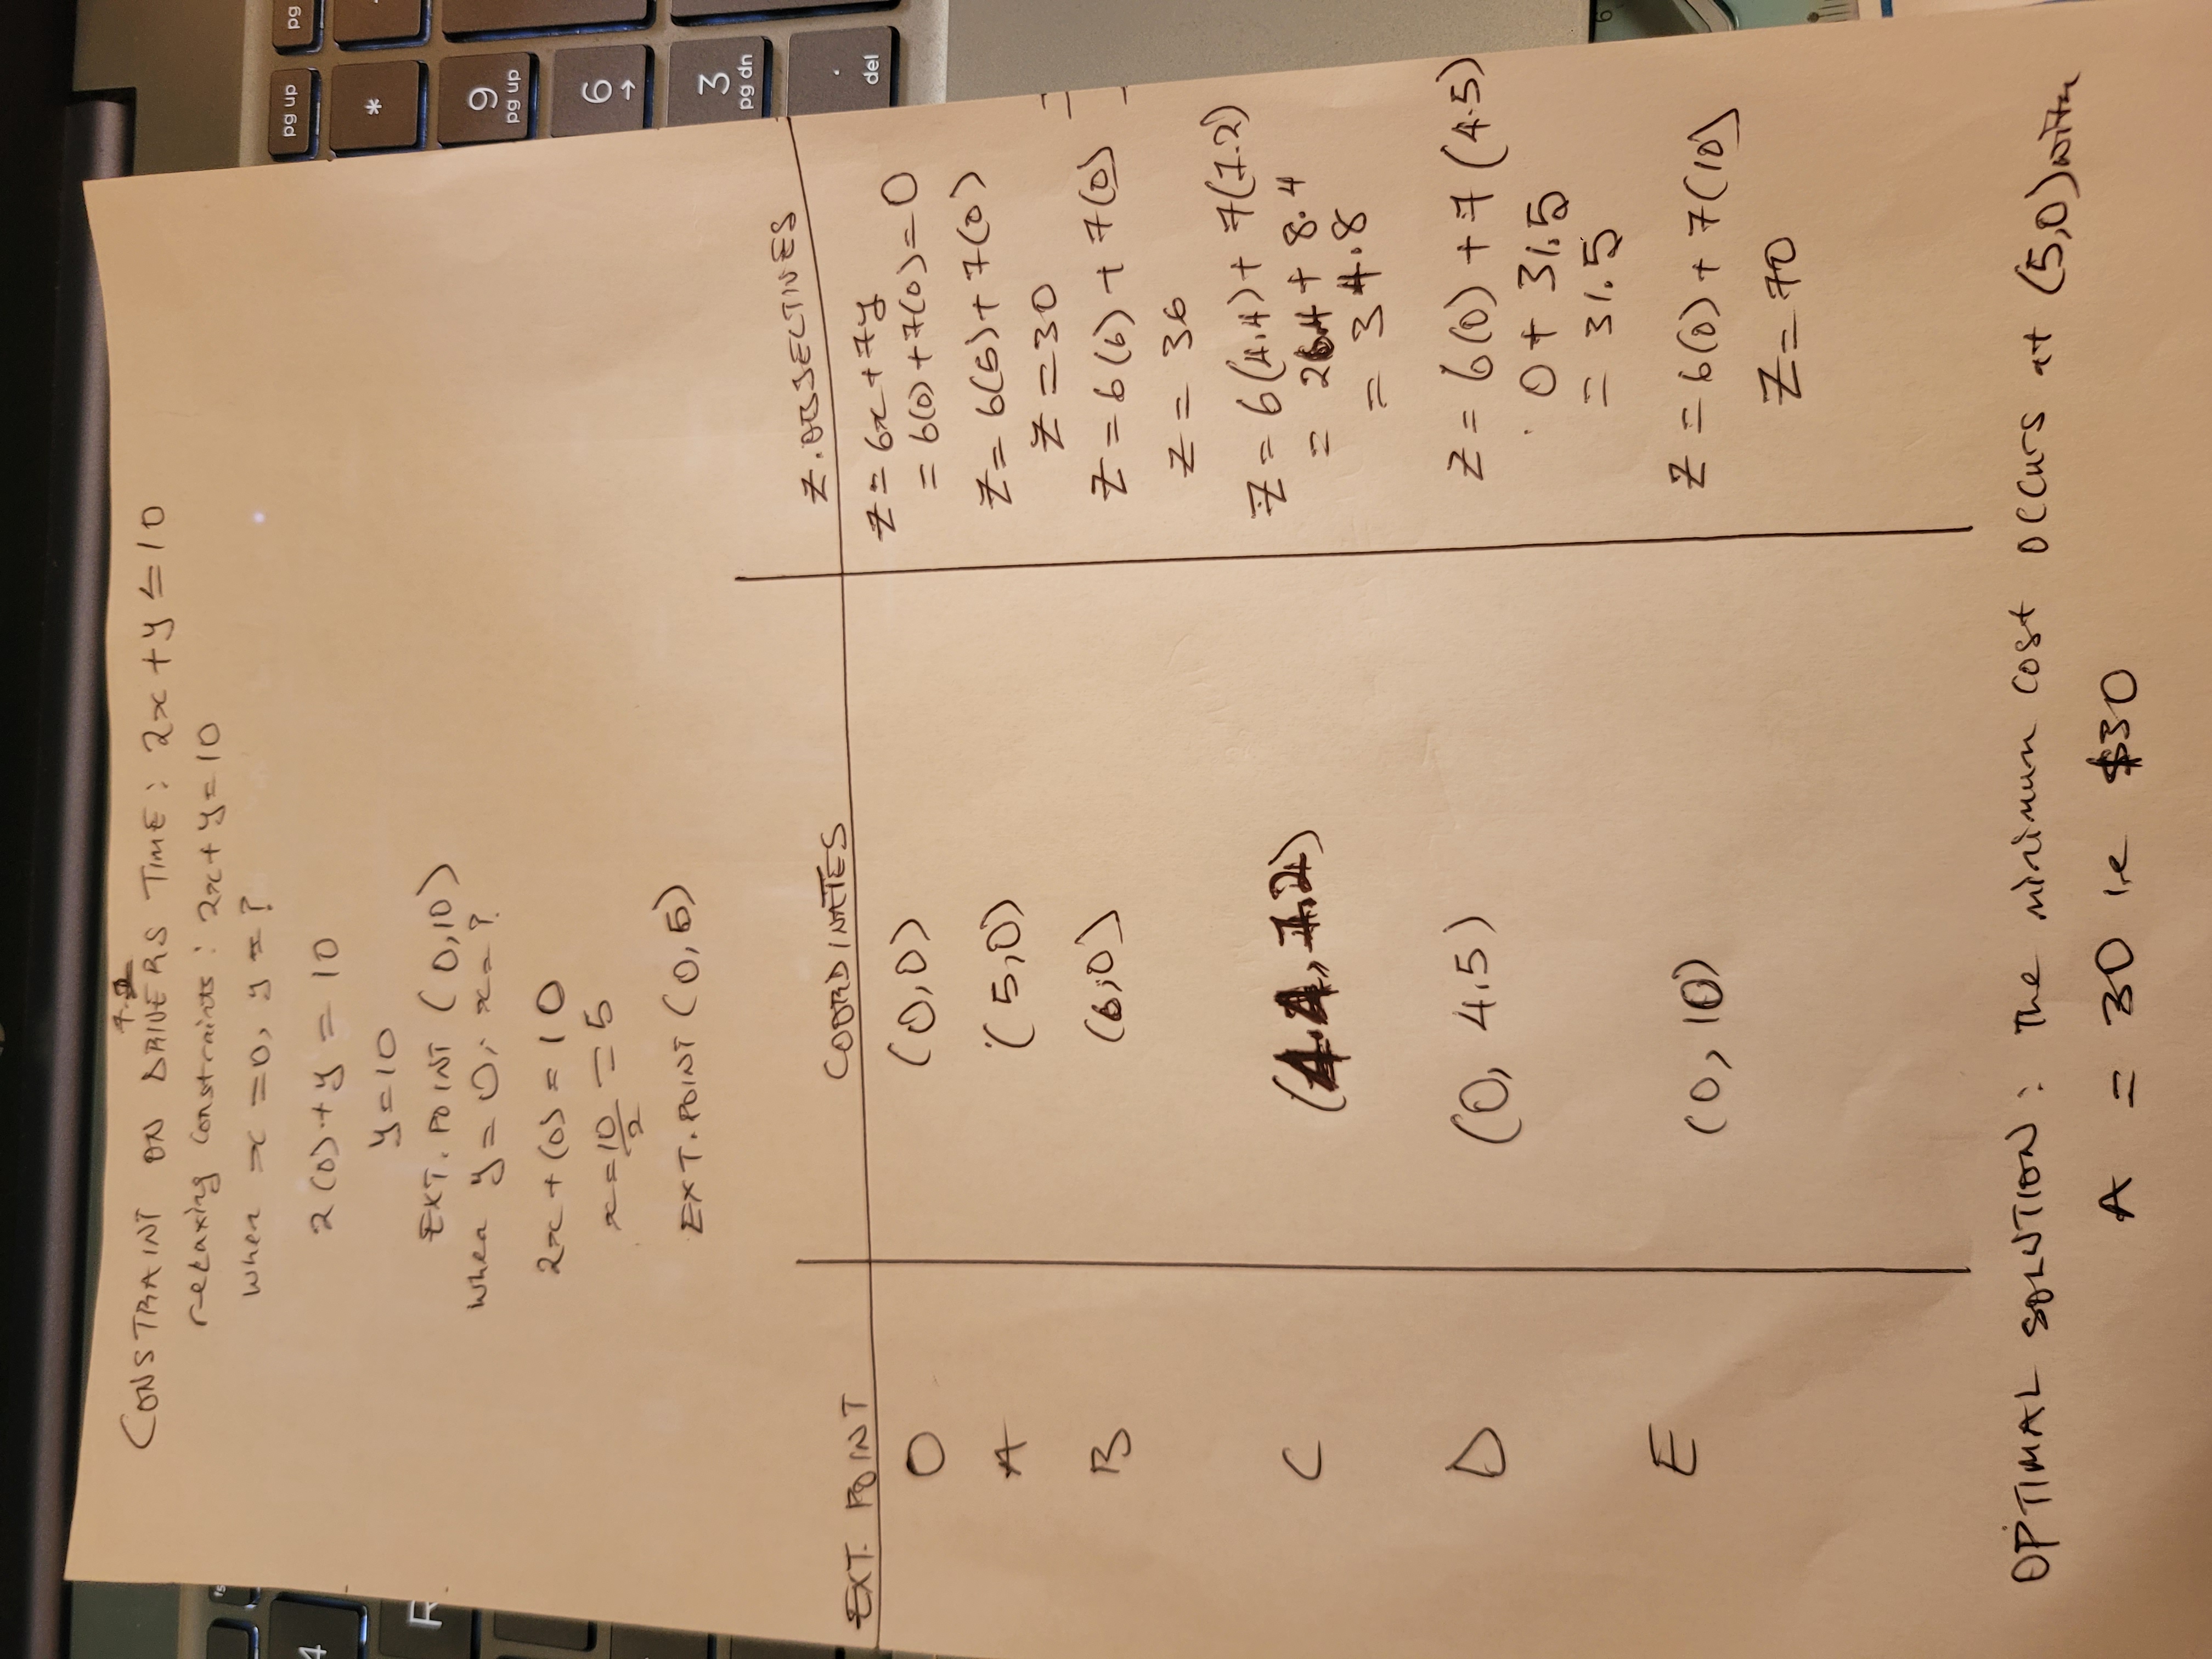 7.2
CONSTRAINT ON DRIVERS TIME: 2x + y ≤ 10
relaxing constraints: 2x + y = 10
when x = 0, y = ?
2(0) + y = 10
y = 10
EXT. POINT (0,10)
when y = 0, x = ?
2x + (0) = 10
x = 10/2 = 5
EXT. POINT (0,5)
EXT. POINT COORDINATES Z. OBJECTIVES
O (0,0) Z = 6x + 7y
= 6(0) + 7(0) = 0
A (5,0) Z = 6(5) + 7(0)
Z = 30
B (6,0) Z = 6(6) + 7(0)
Z = 36
C (4.4, 1.2) Z = 6(4.4) + 7(1.2)
= 26.4 + 8.4
= 34.8
D (0, 4.5) Z = 6(0) + 7(4.5)
0 + 31.5
= 31.5
E (0, 10) Z = 6(0) + 7(10)
Z = 70
OPTIMAL SOLUTION: The minimum cost occurs at (5,0) with
A = 30 i.e $30
4
R
fs
pg up
pg
*
9
pg up
6
→
3
pg dn
.
del
6